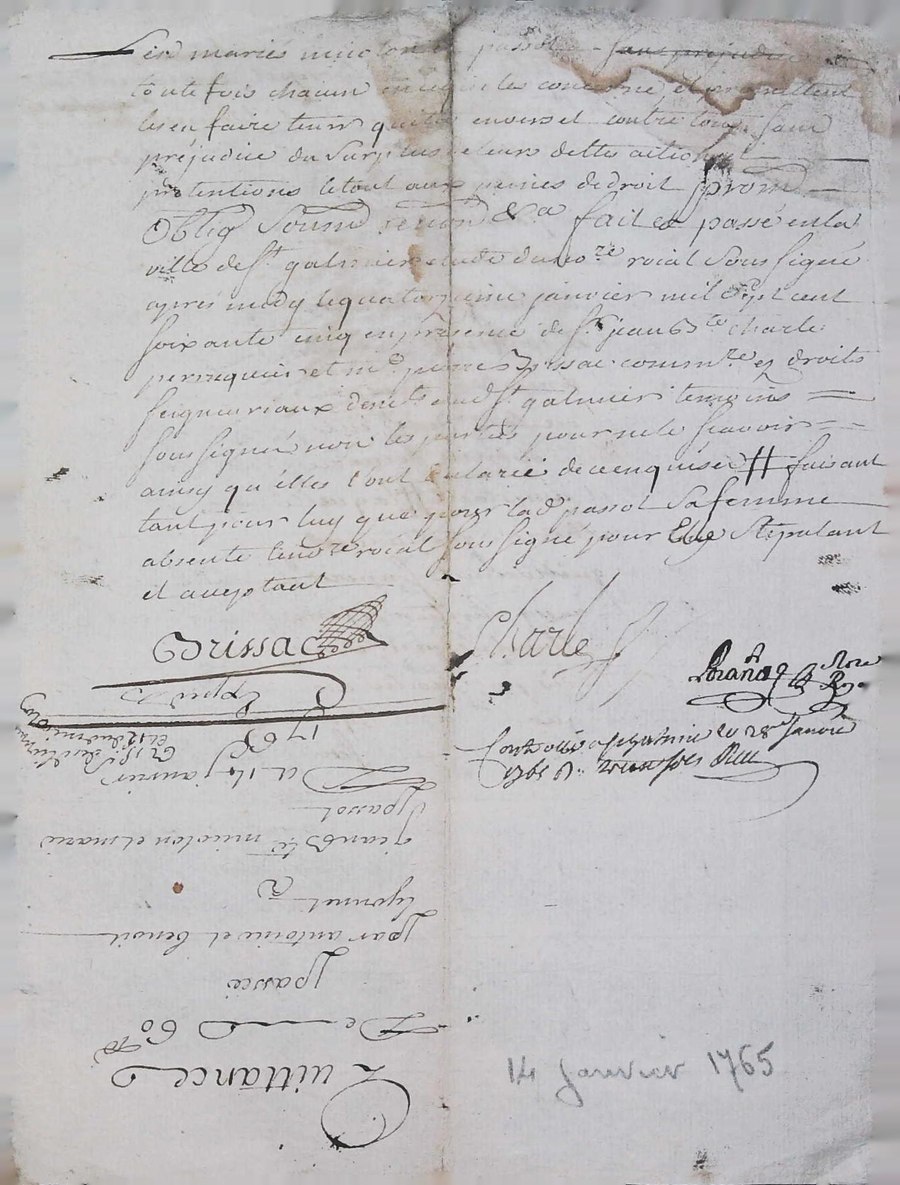 les maries micolon et passot sans prejudice
toute fois chacun en ce qui les concerne et promettent
les en faire tenir quitte envers et contre tous sauf
prejudice du surplus de leurs dettes actions et
pretentions le tout aux peines de droit prom
Oblig Soum renon &a fait et passé en la
ville de St galmier etude du nore roial Soussigné
apres midy le quatorzieme janvier mil Sept cent
Soixante cinq en presence de Sr jean Bte charle
perruquier et me pierre Brissac commre ez droits
Seigneuriaux demts aud St galmier temoins
Soussignés non les parties pour ne le scavoir
ainsy qu'elles l'ont declaré de ce enquises # faisant
tant pour luy que pour lad passot Sa femme
absente le nore roial Soussigné pour Elle Stipulant
et acceptant
Brissac
Charle
Expedié
Controllé a St galmier le 28e Janvier
1765 R
14 janvier 1765
Quittance
De 60 lt
passée
par antoine et benoit
lyonnet a
jean Bte micolon et marie
passot
Du 14 janvier
1765